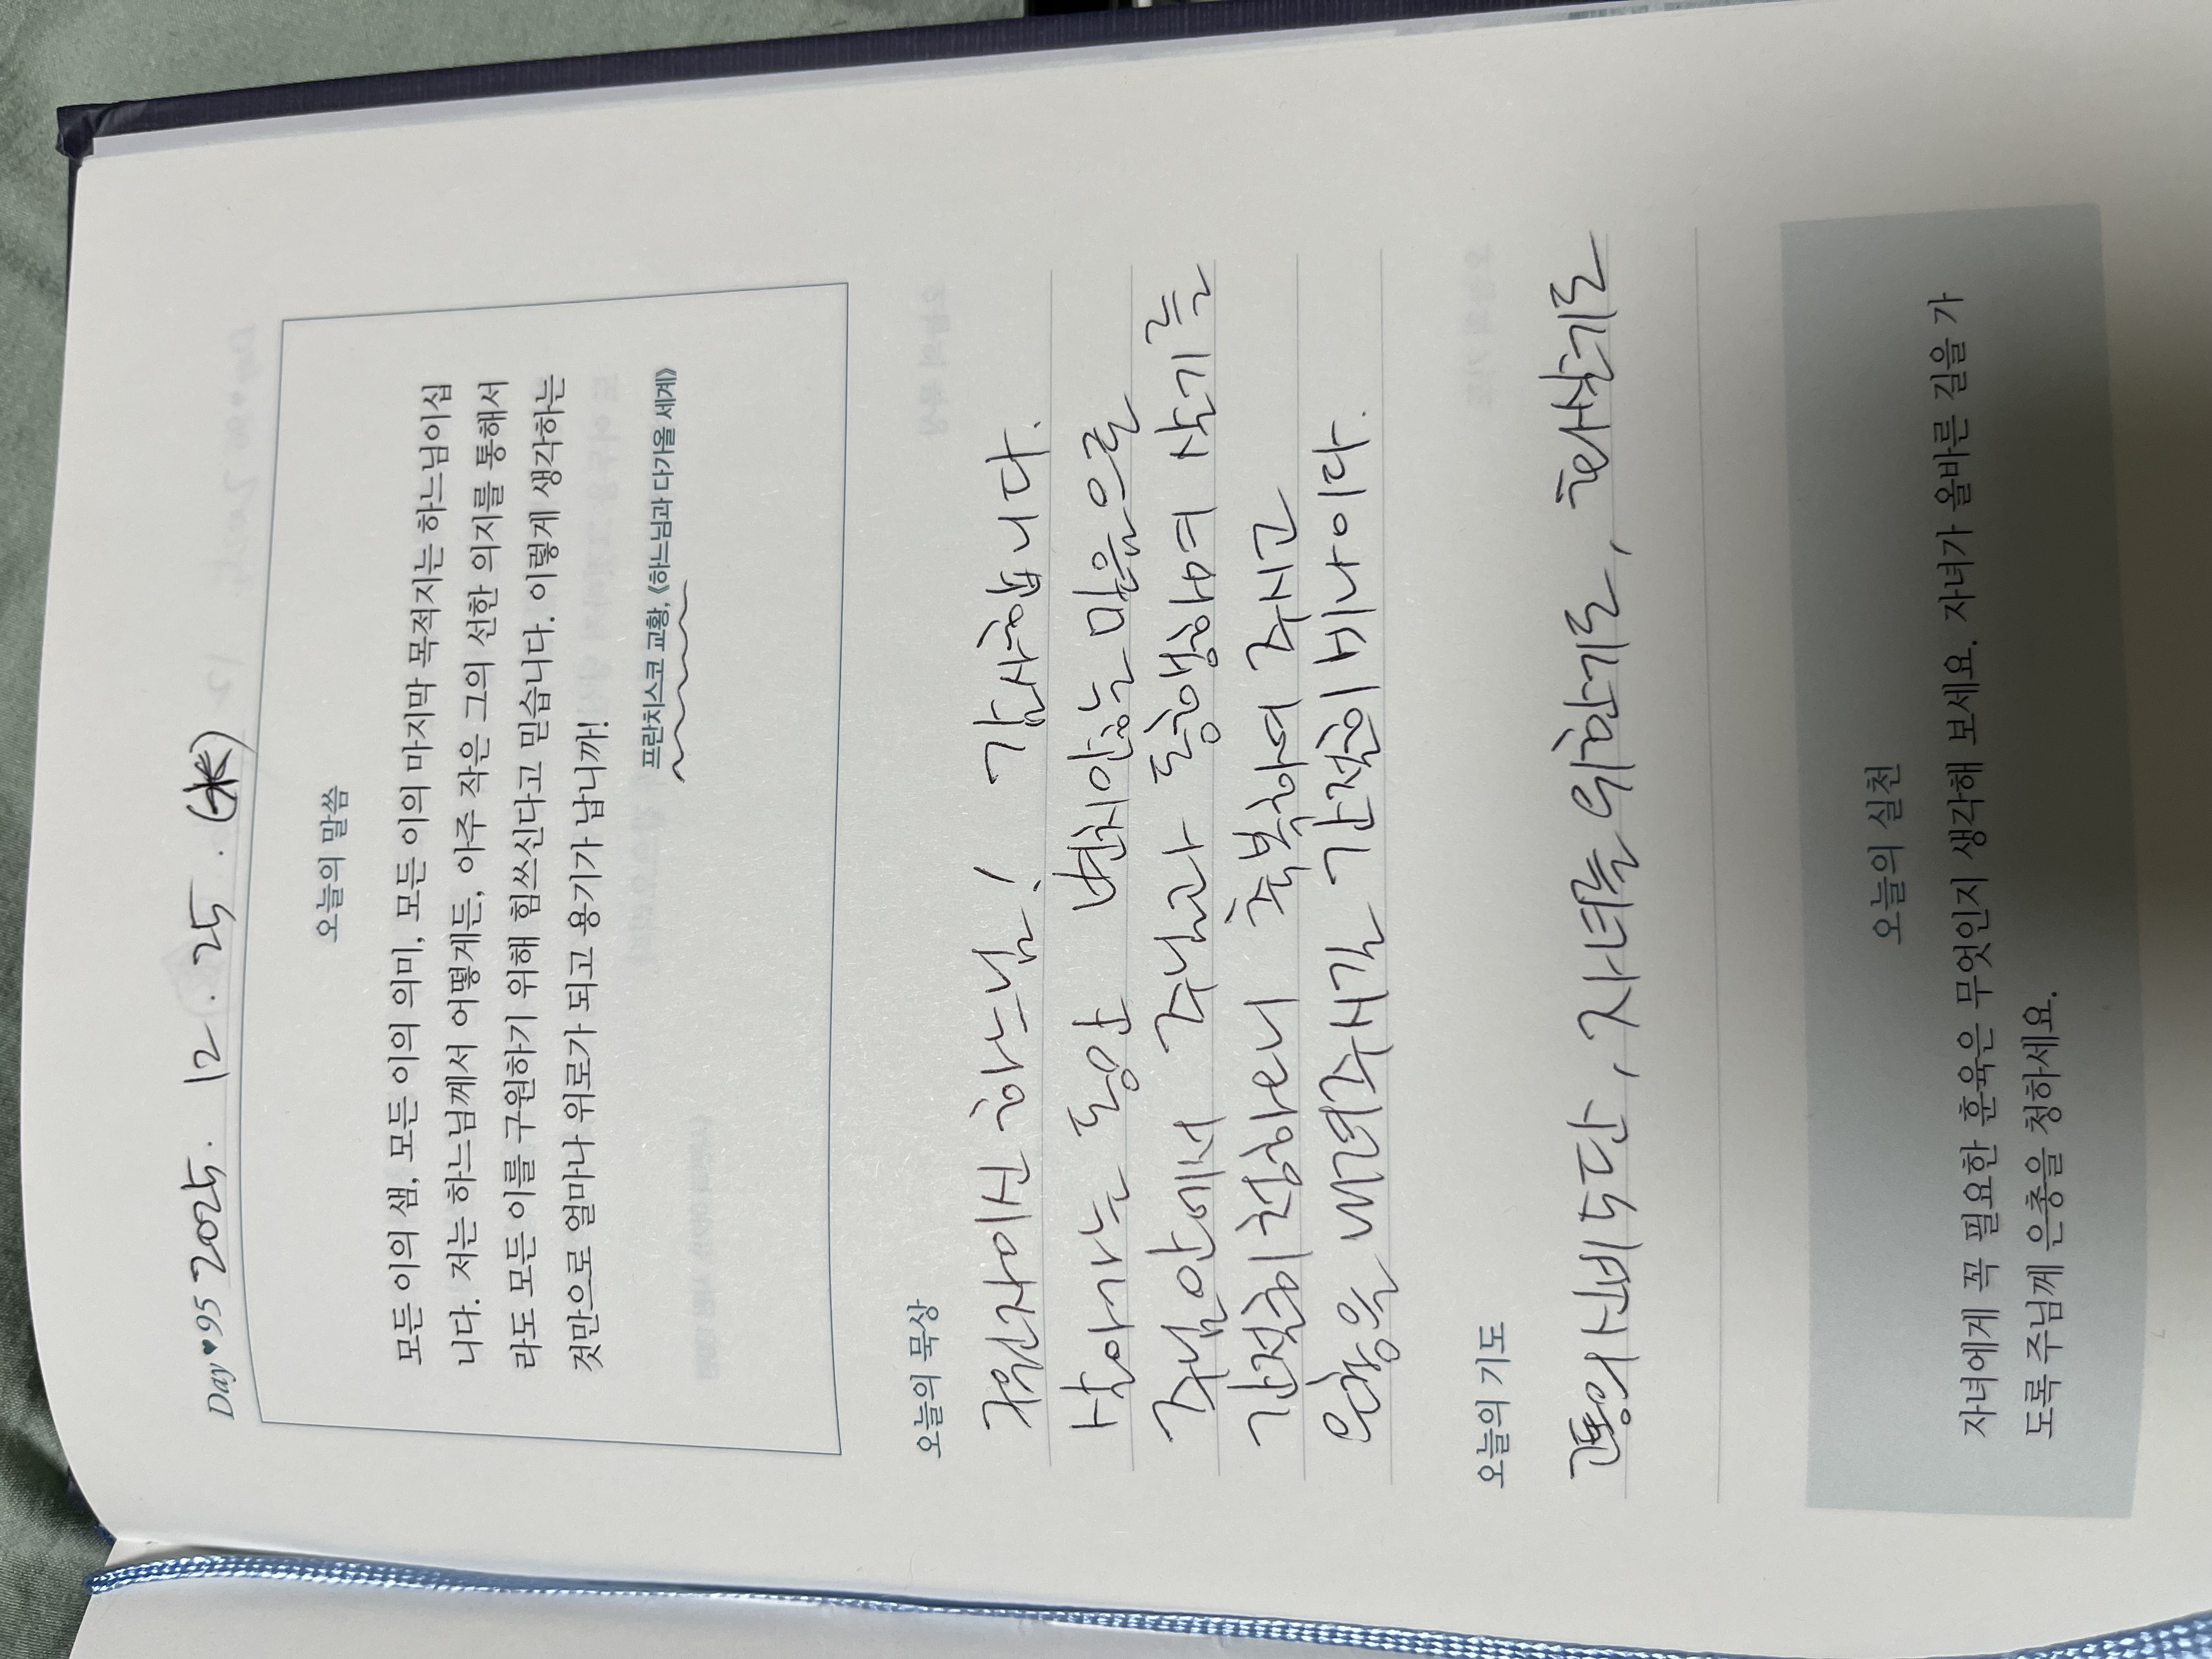 Day♥95 2025. 12. 25. (木)
오늘의 말씀
모든 이의 샘, 모든 이의 의미, 모든 이의 마지막 목적지는 하느님이십
니다. 저는 하느님께서 어떻게든, 아주 작은 그의 선한 의지를 통해서
라도 모든 이를 구원하기 위해 힘쓰신다고 믿습니다. 이렇게 생각하는
것만으로 얼마나 위로가 되고 용기가 납니까!
프란치스코 교황, 《하느님과 다가올 세계》
오늘의 묵상
구원자이신 하느님! 감사합니다.
살아가는 동안 변치않는 믿음으로
주님 안에서 주님과 동행하며 살기를
간절히 청하오니 축복하여 주시고
은총을 내려주시길 간절히 비나이다.
오늘의 기도
묵주의 5단, 자녀를 위한기도, 화살기도
오늘의 실천
자녀에게 꼭 필요한 훈육은 무엇인지 생각해 보세요. 자녀가 올바른 길을 가
도록 주님께 은총을 청하세요.